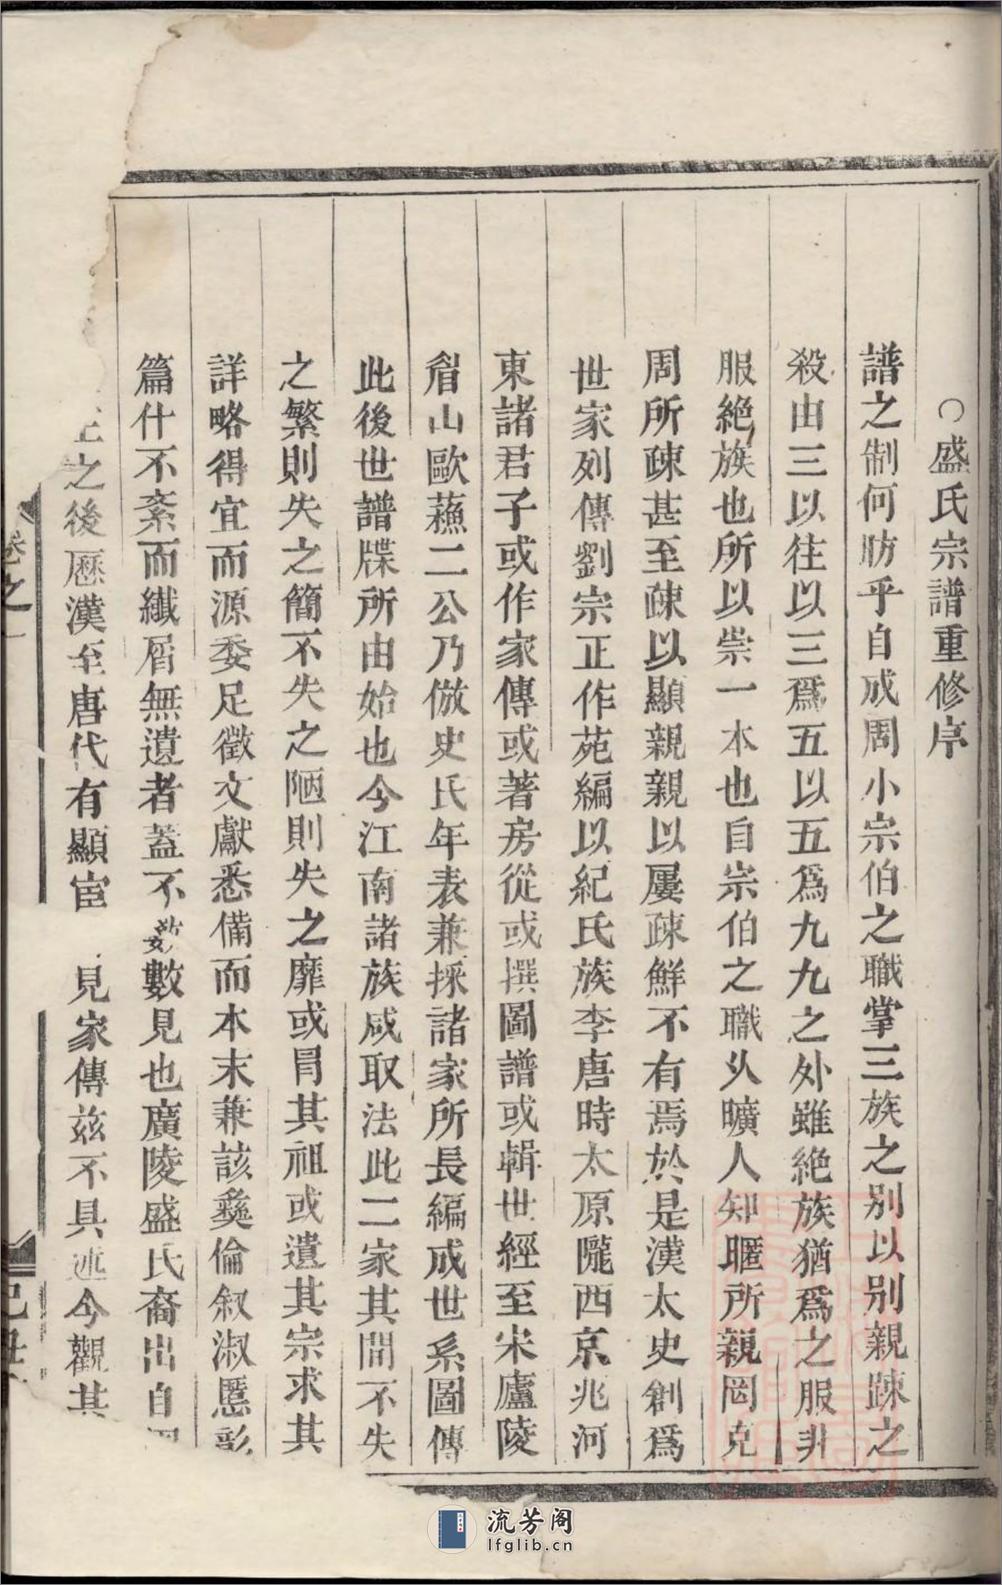 ○盛氏宗譜重修序
譜之制何昉乎自成周小宗伯之職掌三族之別以別親踈之
殺由三以往以三爲五以五爲九九之外雖絶族猶爲之服非
服絶族也所以崇一本也自宗伯之職乆曠人知暱所親罔克
周所疎甚至疎以顯親親以屢疎鮮不有焉於是漢太史創爲
世家列傳劉宗正作苑編以紀氏族李唐時太原隴西京兆河
東諸君子或作家傳或著房從或撰圖譜或輯世經至宋廬陵
眉山歐蘓二公乃倣史氏年表兼採諸家所長編成世系圖傳
此後世譜牒所由始也今江南諸族咸取法此二家其間不失
之繁則失之簡不失之陋則失之靡或冐其祖或遺其宗求其
詳略得宜而源委足徵文獻悉備而本末兼該彝倫叙淑慝彰
篇什不紊而纖屑無遺者葢不數數見也廣陵盛氏裔出自
之後歷漢至唐代有顯宦 見家傳兹不具述今觀其
卷之一
流芳阁
lfglib.cn